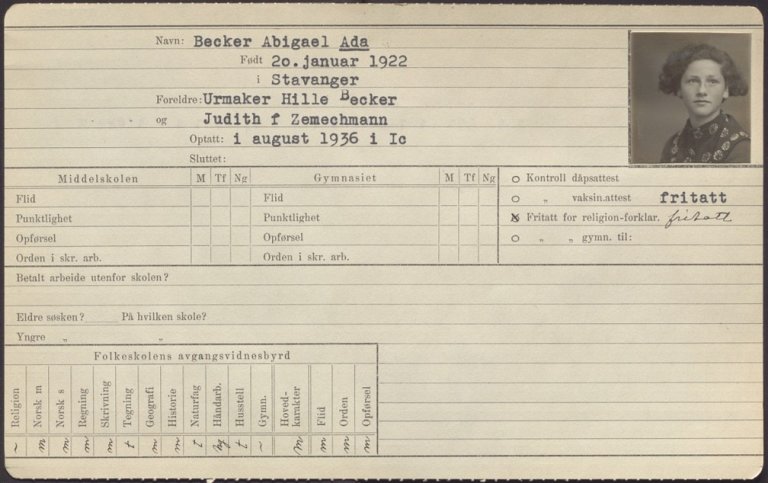 Navn: Becker Abigael Ada
Født 20.januar 1922
i Stavanger
Foreldre: Urmaker Hille Becker
og Judith f Zemechmann
Optatt: i august 1936 i Ic
Sluttet:
Middelskolen M Tf Ng Gymnasiet M Tf Ng
Flid Flid
Punktlighet Punktlighet
Opførsel Opførsel
Orden i skr. arb. Orden i skr. arb.
o Kontroll dåpsattest
o „ vaksin.attest fritatt
x Fritatt for religion-forklar. fritatt
o „ „ gymn. til:
Betalt arbeide utenfor skolen?
Eldre søsken? På hvilken skole?
Yngre „ „
Folkeskolens avgangsvidnesbyrd
Religion Norsk m Norsk s Regning Skrivning Tegning Geografi Historie Naturfag Håndarb. Husstell Gymn. Hoved-karakter Flid Orden Opførsel
~ m m m m t m m t ng t ~ m m m m